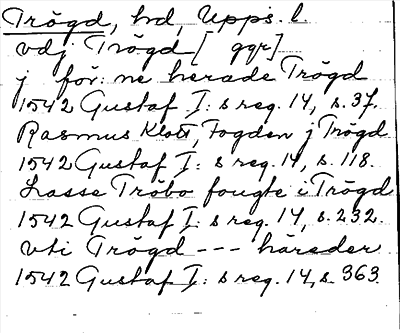 Trögd, hd, Upps. l.
vdj Trögd [ ggr]
j för: ne herade Trögd
1542 Gustaf I: s reg. 14, s. 37.
Rasmus Klott, Fogden j Trögd
1542 Gustaf I: s reg. 14, s. 118.
Lasse Tröbo fougte i Trögd
1542 Gustaf I: s reg. 14, s. 232.
vti Trögd --- häreder
1542 Gustaf I: s reg. 14, s. 363.